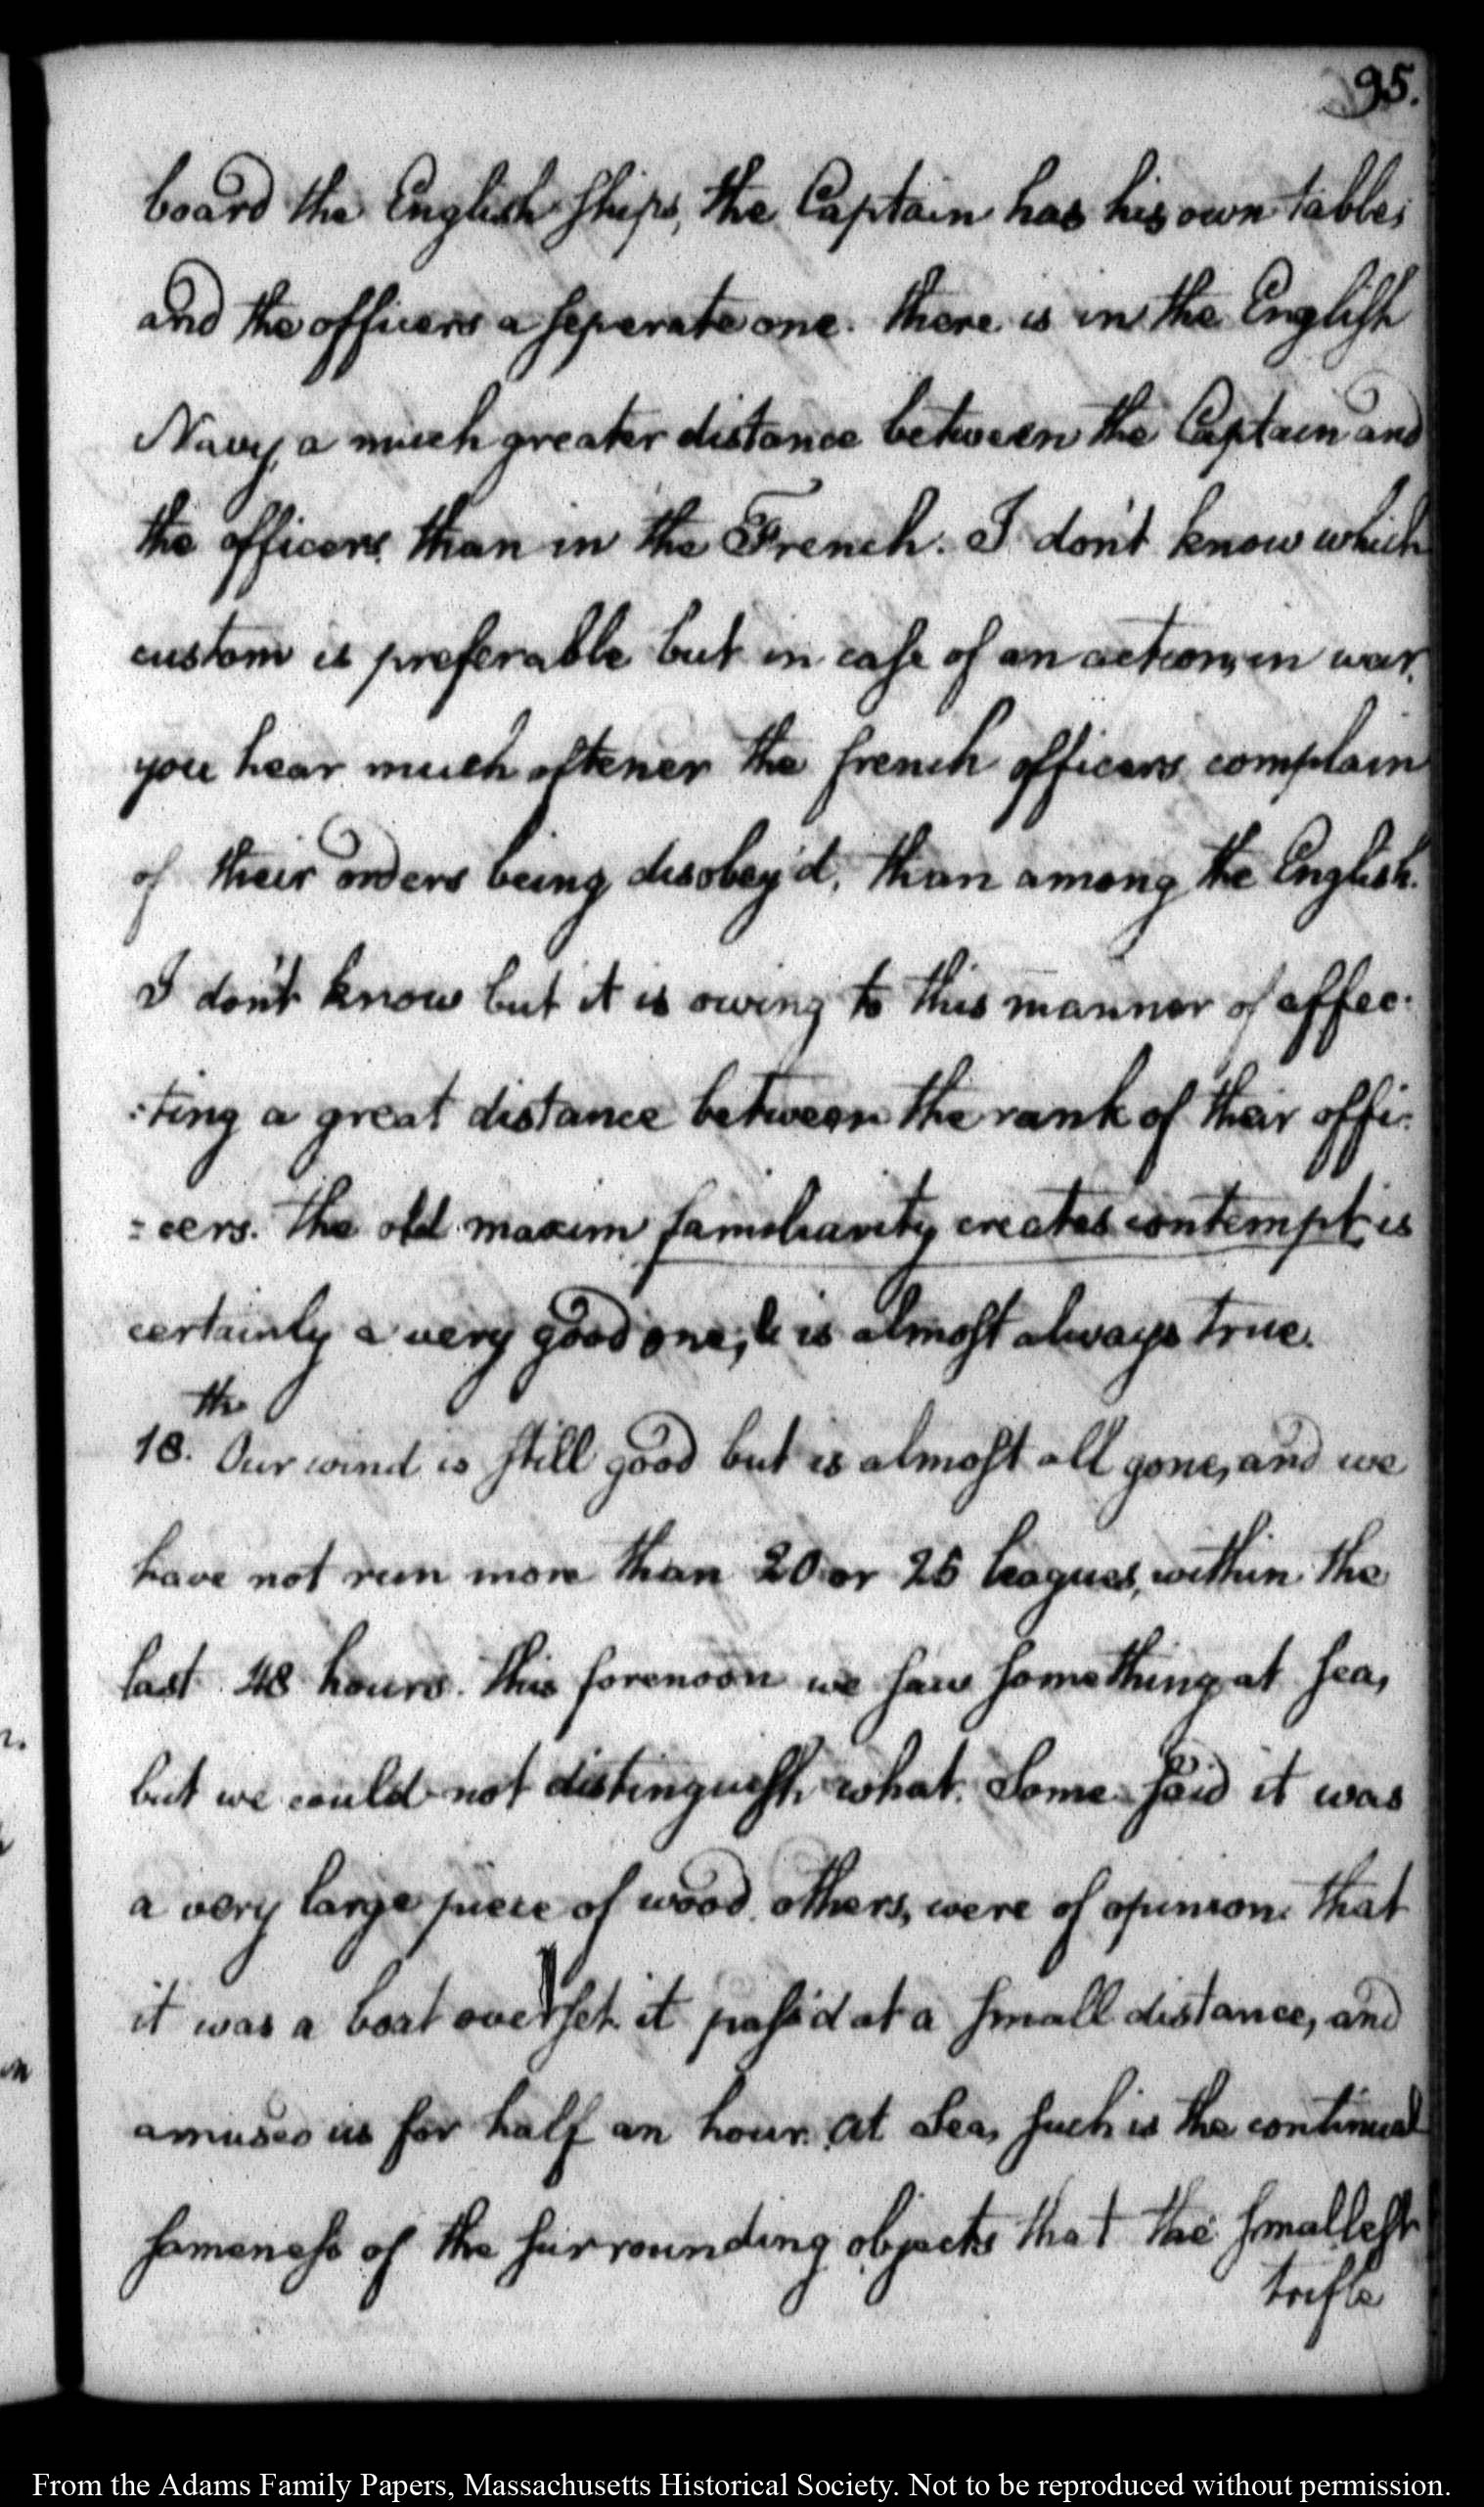 95.
board the English ships, the Captain has his own table;
and the officers a seperate one. there is in the English
Navy, a much greater distance between the Captain and
the officers, than in the French. I don't know which
custom is preferable but in case of an action, in war,
you hear much oftener the french officers complain
of their orders being disobey'd, than among the English.
I don't know but it is owing to this manner of affec-
:ting a great distance between the rank of their offi-
=cers. The old maxim familiarity creates contempt is
certainly a very good one, it is almost always true.
th
18. Our wind is still good but is almost all gone, and we
have not run more than 20 or 25 leagues, within the
last 48 hours. this forenoon we saw something at sea,
but we could not distinguish what. Some said it was
a very large piece of wood. others, were of opinion that
it was a boat overset. it pass'd at a small distance, and
amused us for half an hour. at Sea, such is the continual
sameness of the surrounding objects that the smallest
trifle
From the Adams Family Papers, Massachusetts Historical Society. Not to be reproduced without permission.